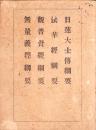 日蓮大士傳綱要
法華經綱要
觀普賢經綱要
無量義經綱要